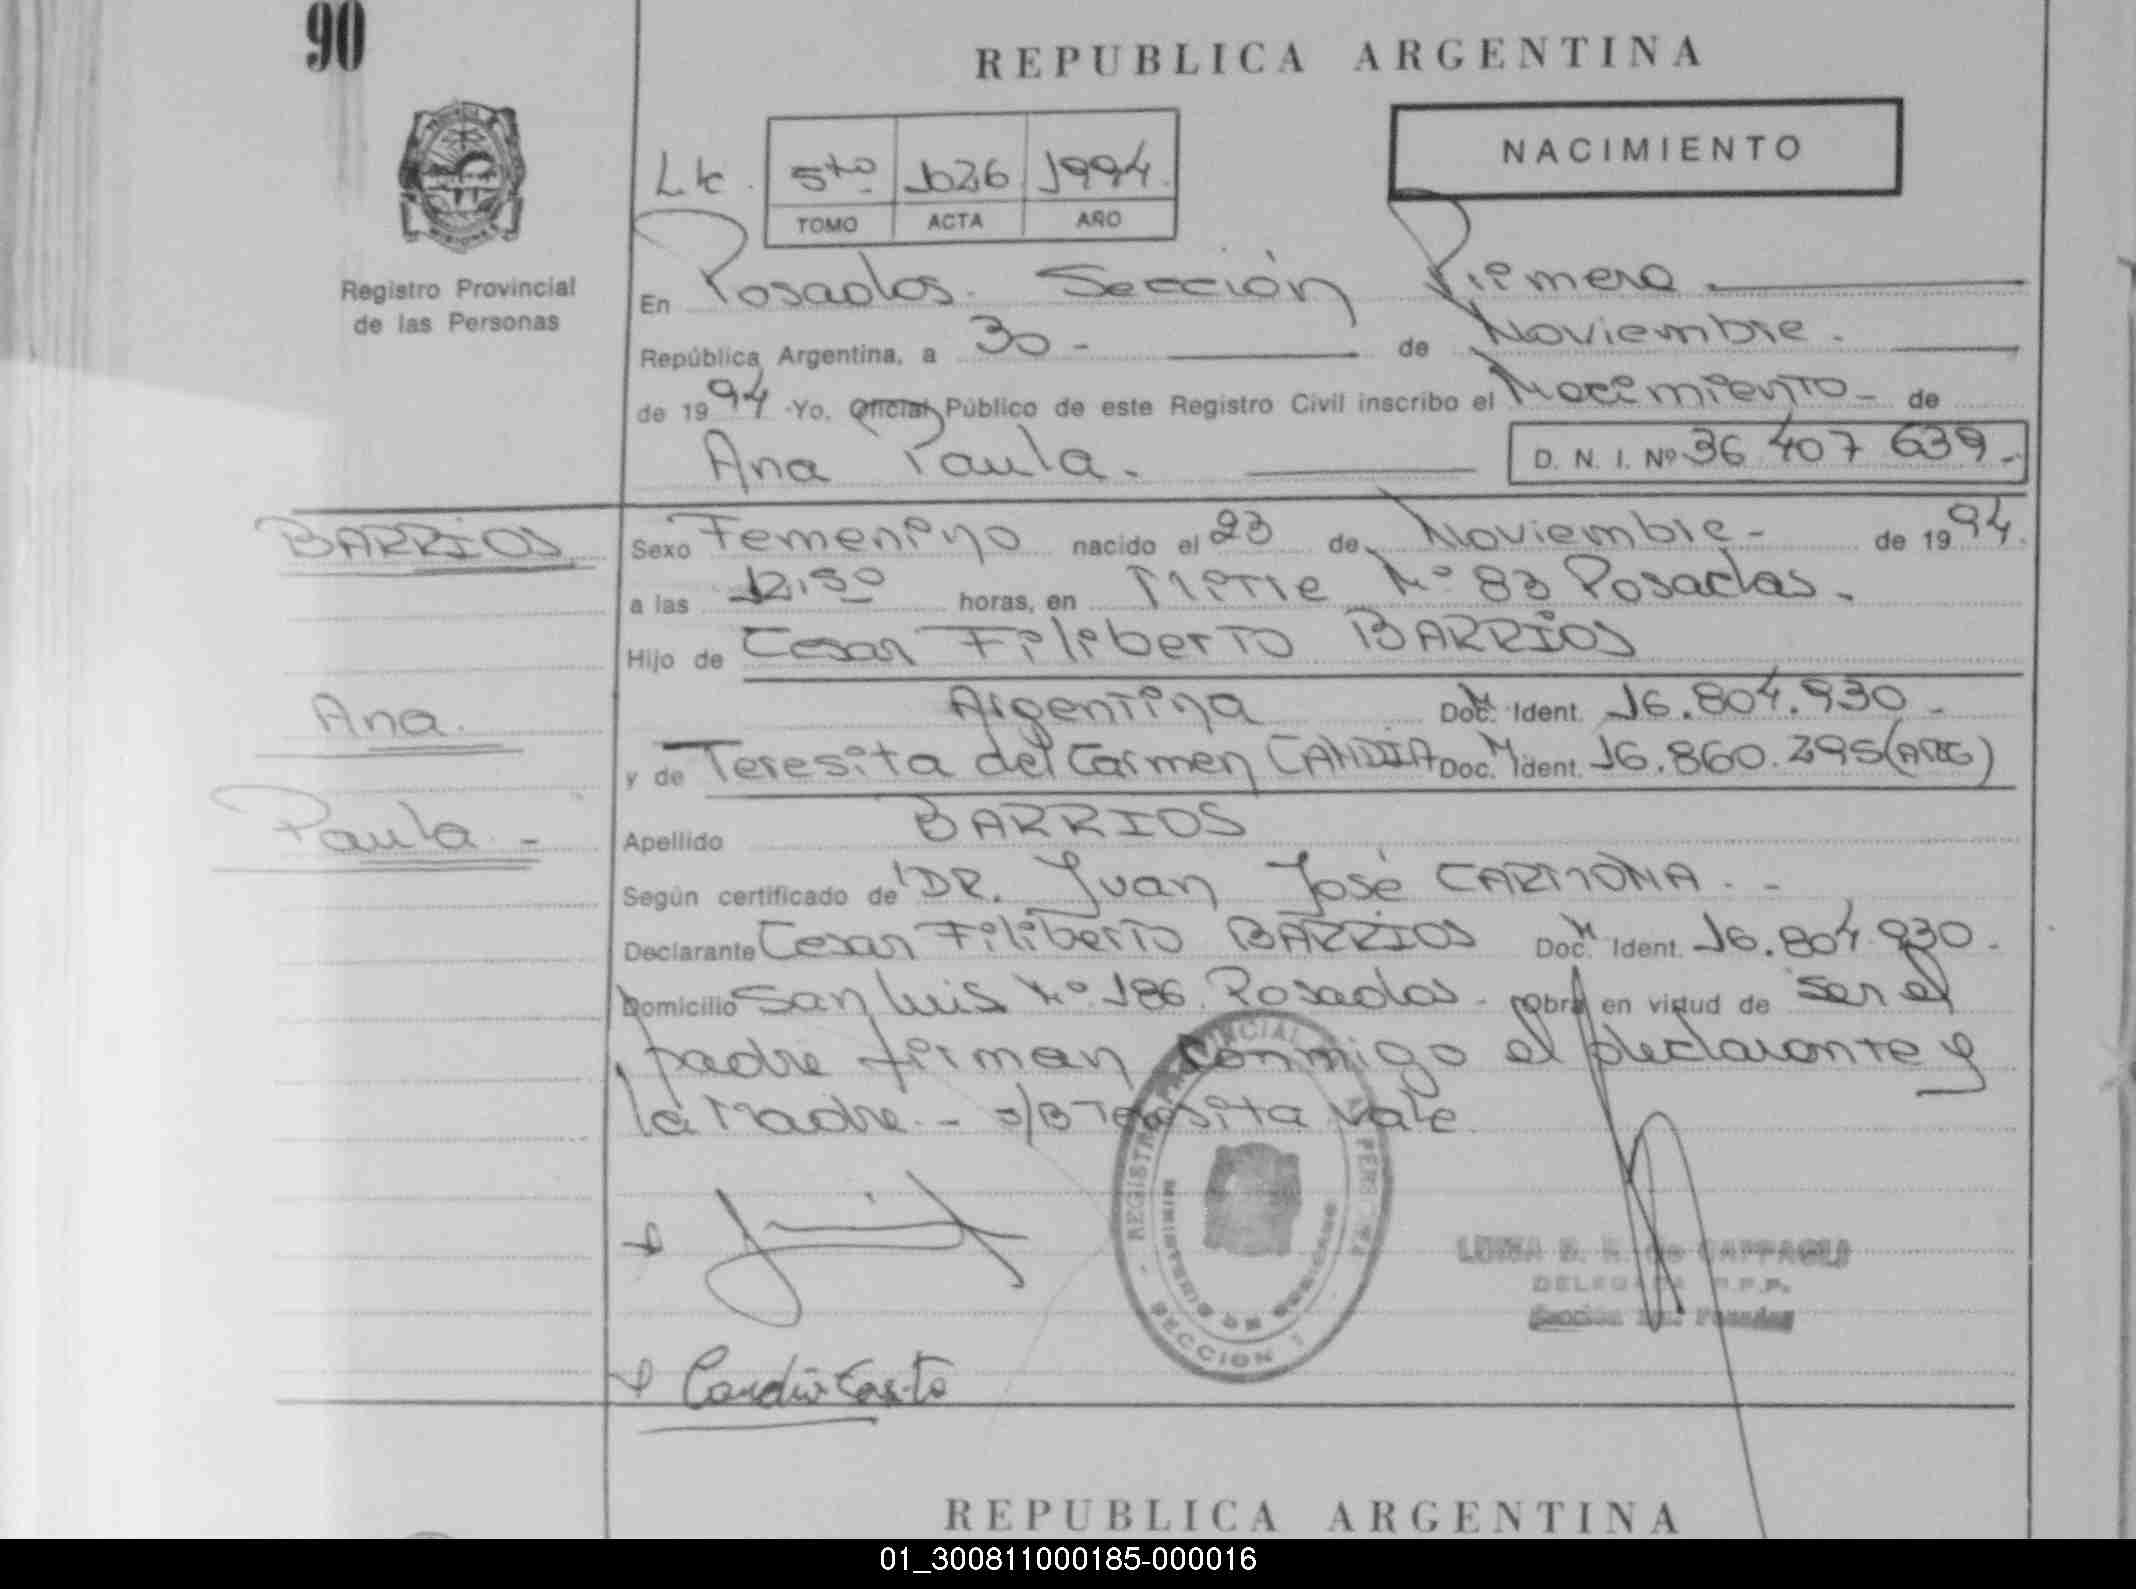 90
REPUBLICA ARGENTINA
NACIMIENTO
5to 1026 1994
TOMO ACTA AÑO
Registro Provincial
de las Personas
En Posadas. Sección Primera
República Argentina, a 30 - de Noviembre.
de 1994 Yo, Oficial Público de este Registro Civil inscribo el Nacimiento - de
Ana Paula. D. N. I. Nº 36 407 639 -
BARRIOS
Ana.
Paula. -
Sexo Femenino nacido el 23 de Noviembre - de 1994.
a las 12,30 horas, en Mitre Nº 83 Posadas.
Hijo de Cesar Filiberto BARRIOS
Argentina Doc. Ident. 16.804.930 -
y de Teresita del Carmen CANDIA Doc. Ident. 16.860.295 (ARG)
Apellido BARRIOS
Según certificado de DR. Juan José CARMONA. -
Declarante Cesar Filiberto BARRIOS Doc. Ident. 16.804.930 -
Domicilio San Luis Nº 186. Posadas - obra en virtud de ser el
padre firman conmigo el declarante y
la Madre. - s/B Teresita vale
REGISTRO PROVINCIAL
SECCION 1
DELEGADA R.P.P.
Sección 1ra. Posadas
REPUBLICA ARGENTINA
01_300811000185-000016